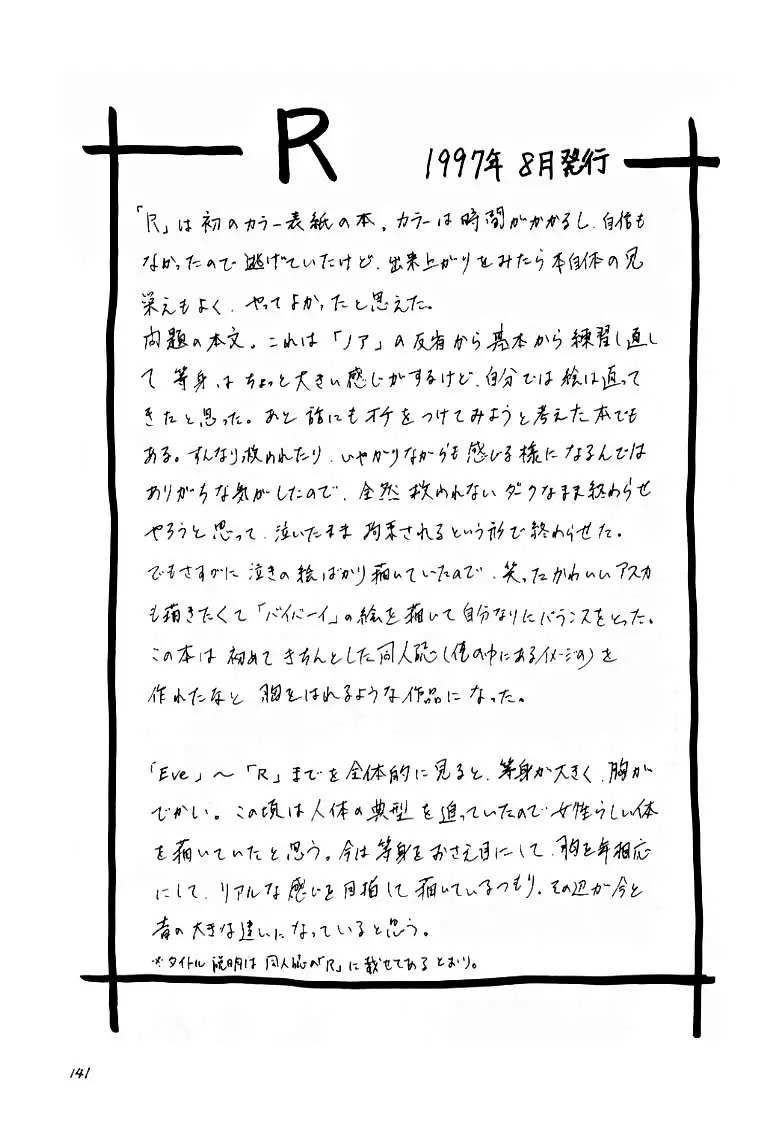 R
1997年 8月発行
「R」は初のカラー表紙の本。カラーは時間がかかるし、自信も
なかったので逃げていたけど、出来上がりをみたら本自体の見
栄えもよく、やってよかったと思えた。
問題の本文。これは「ノア」の反省から基本から練習し直し
て等身はちょっと大きい感じがするけど、自分では絵は直って
きたと思った。あと話にもオチをつけてみようと考えた本でも
ある。すんなり救われたり、いやがりながらも感じる様になるんでは
ありがちな気がしたので、全然救われないダークなまま終わらせ
やろうと思って、泣いたまま拘束されるという形で終わらせた。
でもさすがに泣きの絵ばかり描いていたので、笑ったかわいいアスカ
も描きたくて「バイバーイ」の絵を描いて自分なりにバランスをとった。
この本は初めてきちんとした同人誌(俺の中にあるイメージの)を
作れたなと胸をはれるような作品になった。
「Eve」〜「R」までを全体的に見ると、等身が大きく、胸が
でかい。この頃は人体の典型を追っていたので女性らしい体
を描いていたと思う。今は等身をおさえ目にして、胸を年相応
にして、リアルな感じを目指して描いているつもり。その辺が今と
昔の大きな違いになっていると思う。
※タイトル説明は同人誌の「R」に載せてあるとおり。
141